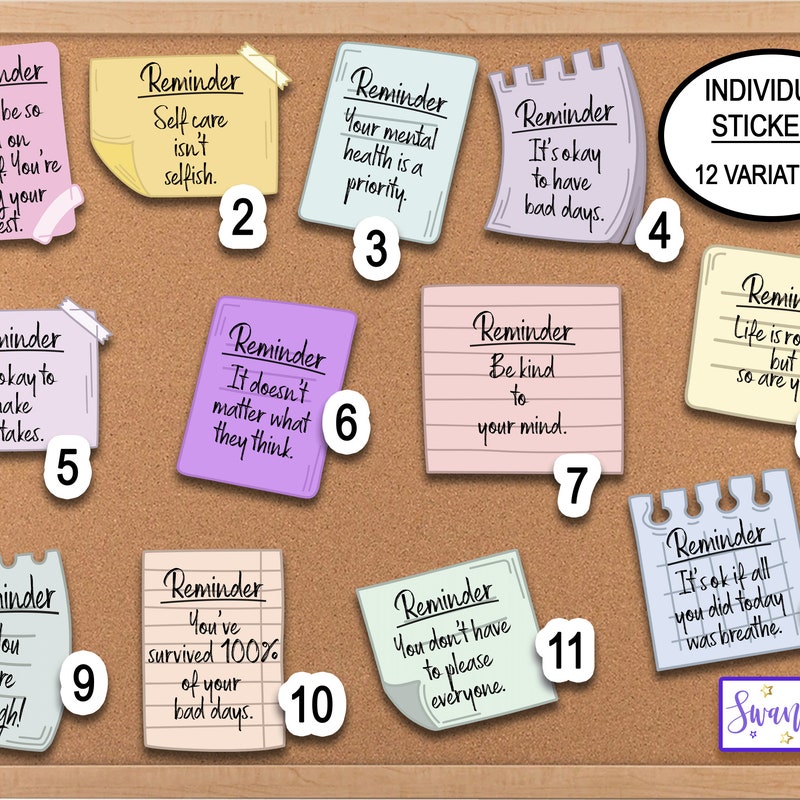 Reminder
Self care
isn't
selfish.
2
Reminder
Your mental
health is a
priority.
3
Reminder
It's okay
to have
bad days.
4
INDIVIDU
STICKE
12 VARIAT
be so
on
You're
your
okay to
takes.
5
Reminder
It doesn't
matter what
they think.
6
Reminder
Be kind
to
your mind.
7
Remin
Life is ro
but
so are y
9
Reminder
You've
survived 100%
of your
bad days.
10
Reminder
You don't have
to please
everyone.
11
Reminder
It's ok if all
you did today
was breathe.
Swan